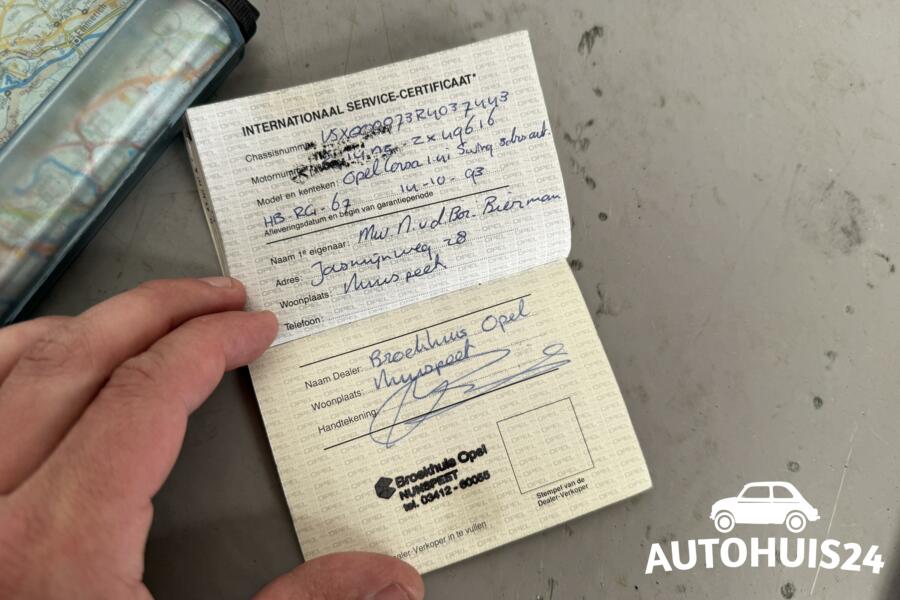 INTERNATIONAAL SERVICE-CERTIFICAAT*
Chassisnummer VSX000073R4037443
Motornummer 14 NZ - 2x49616
Model en kenteken: Opel Corsa 1.4i Swing 3drs aut.
HB-RG-67 14-10-93
Afleveringsdatum en begin van garantieperiode
Naam 1e eigenaar: Mw. N. v.d. Bor. Bierman
Adres: Jasmijnweg 28
Woonplaats: Nunspeet
Telefoon:
Naam Dealer: Broekhuis Opel
Woonplaats: Nunspeet
Handtekening:
Broekhuis Opel
NUNSPEET
tel. 03412 - 60055
Stempel van de
Dealer-Verkoper
ealer-Verkoper in te vullen
AUTOHUIS24